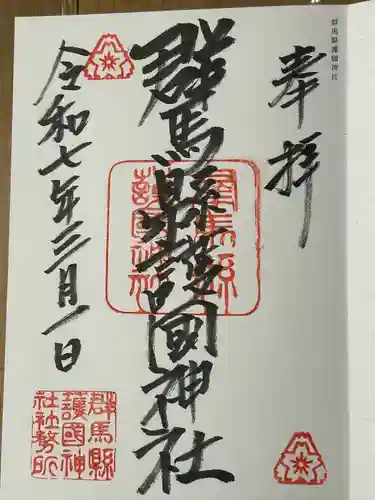 群馬縣護國神社
奉拝
群馬縣護國神社
令和七年三月一日
群馬縣
護國神
社社務所